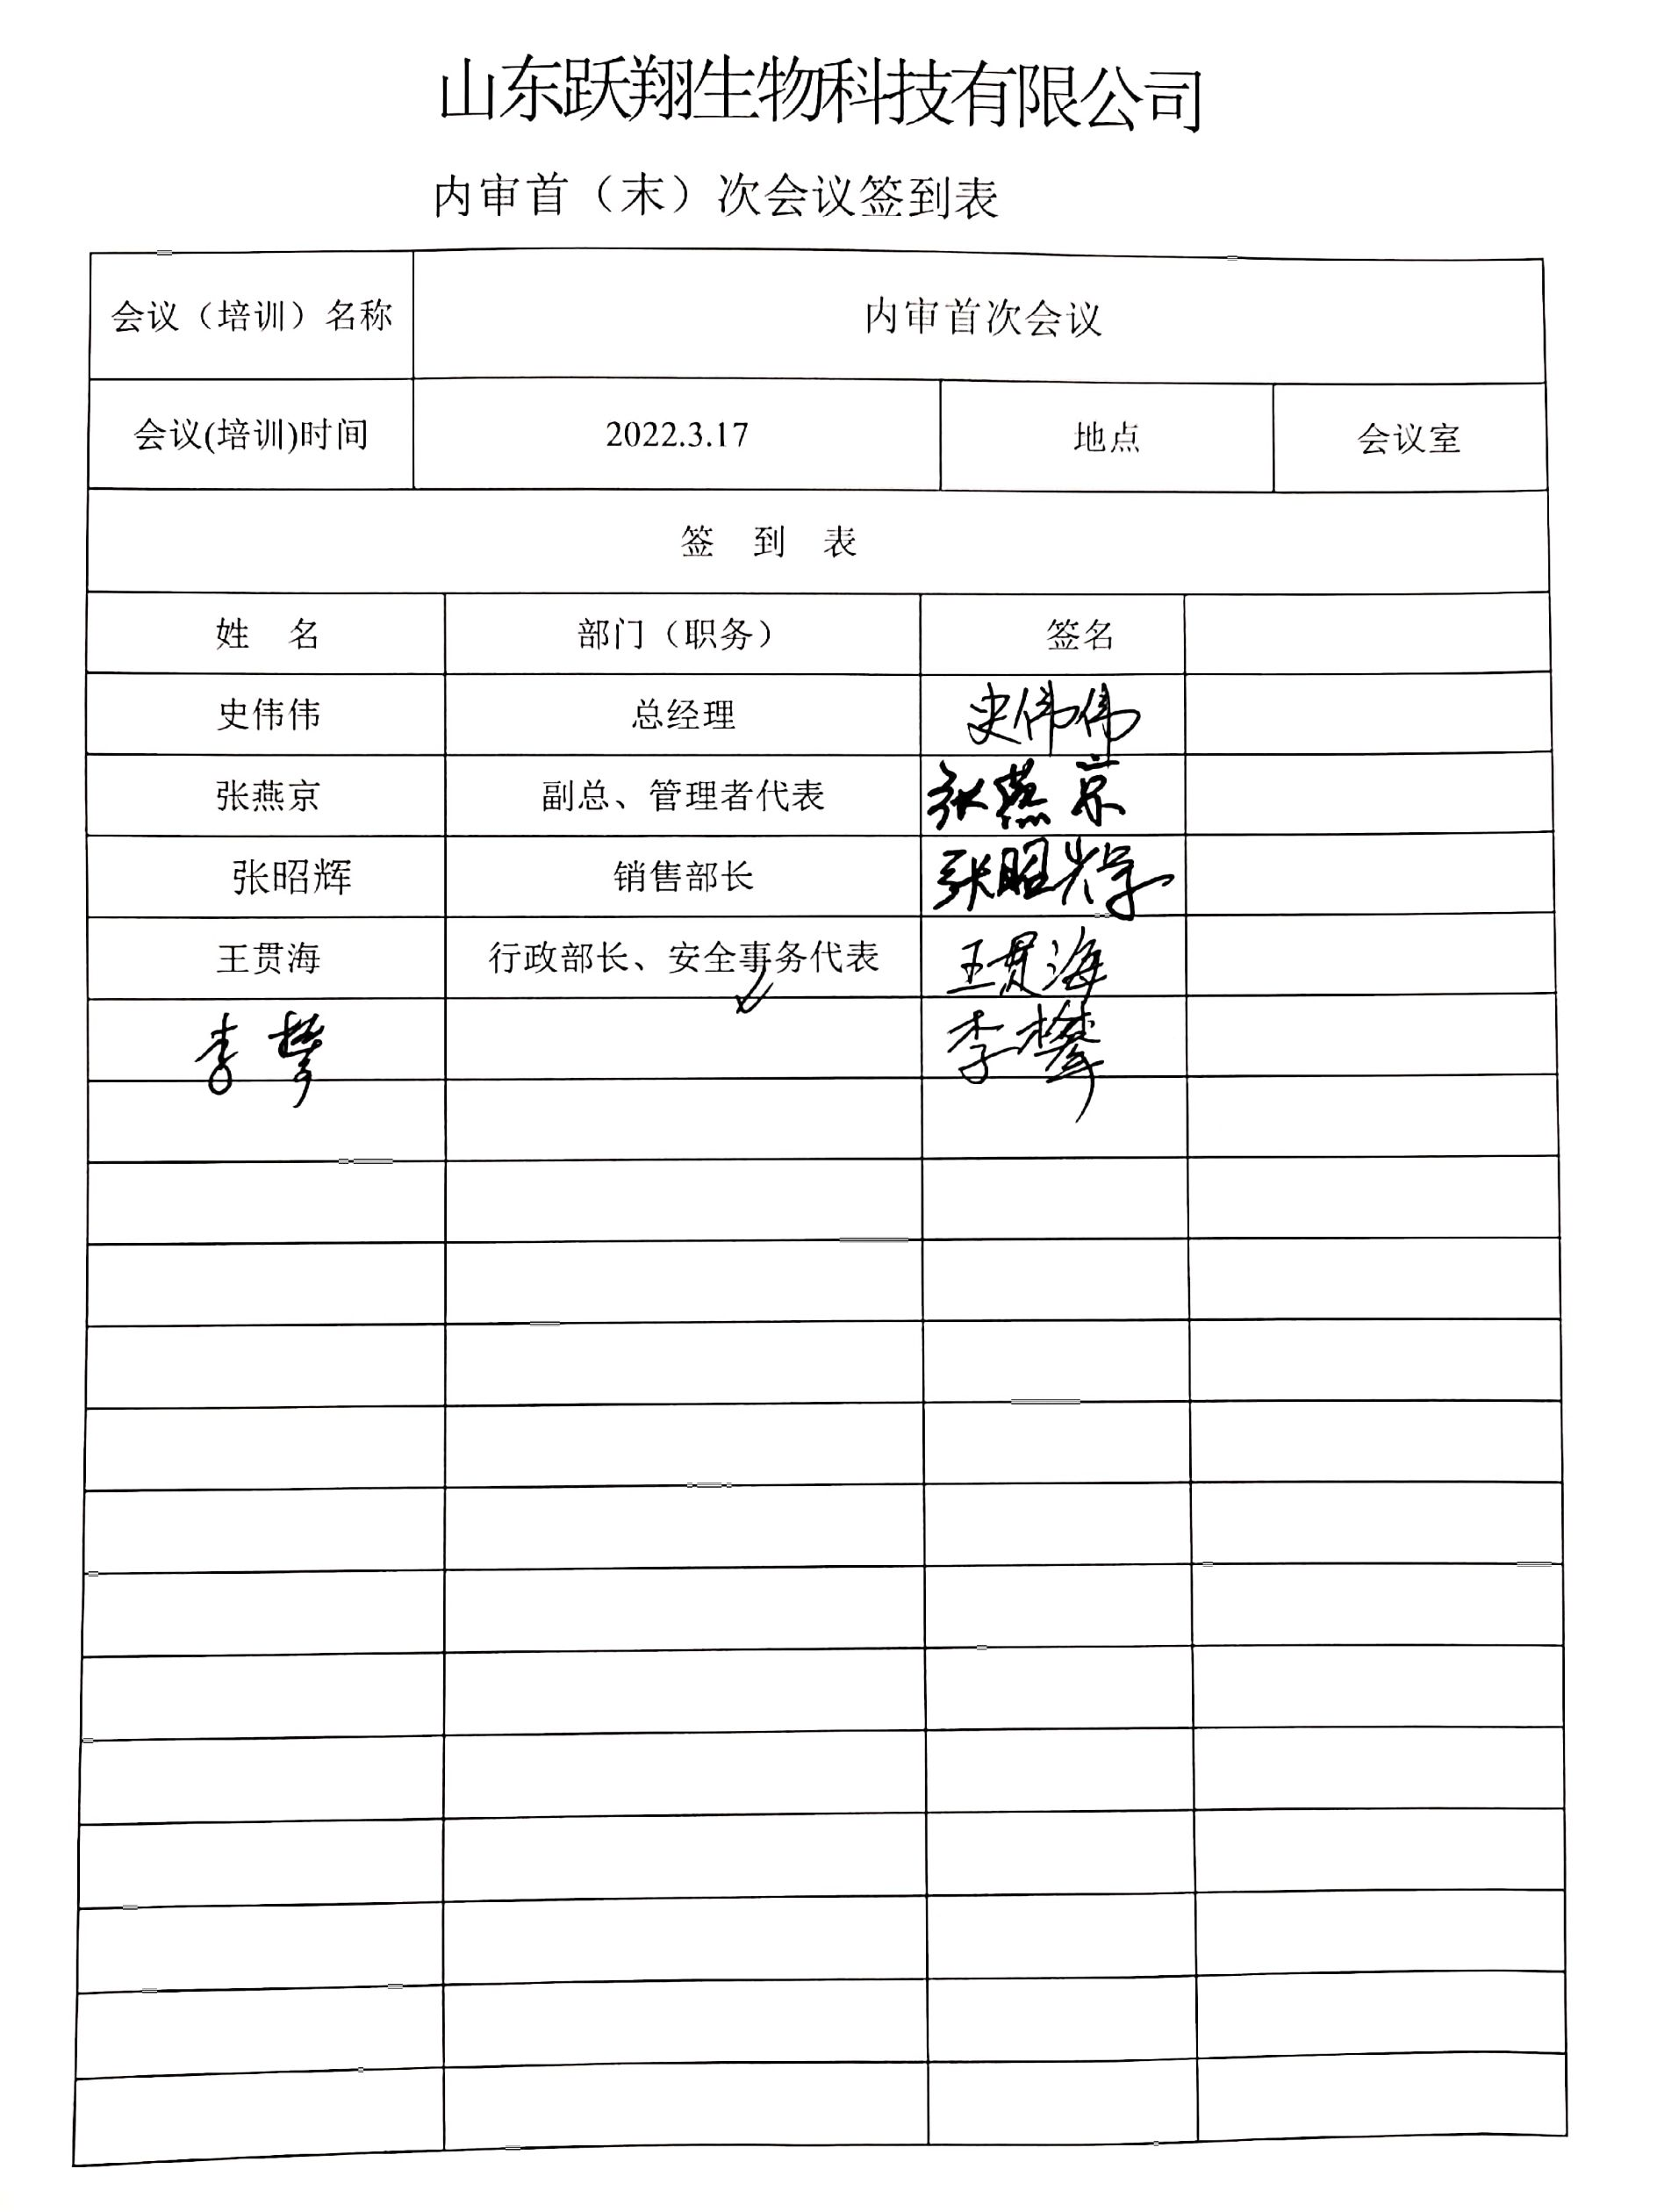 山东跃翔生物科技有限公司
内审首（末）次会议签到表
会议（培训）名称 内审首次会议
会议(培训)时间 2022.3.17 地点 会议室
签 到 表
姓 名 部门（职务） 签名
史伟伟 总经理 史伟伟
张燕京 副总、管理者代表 张燕京
张昭辉 销售部长 张昭辉
王贯海 行政部长、安全事务代表 王贯海
李攀 李攀